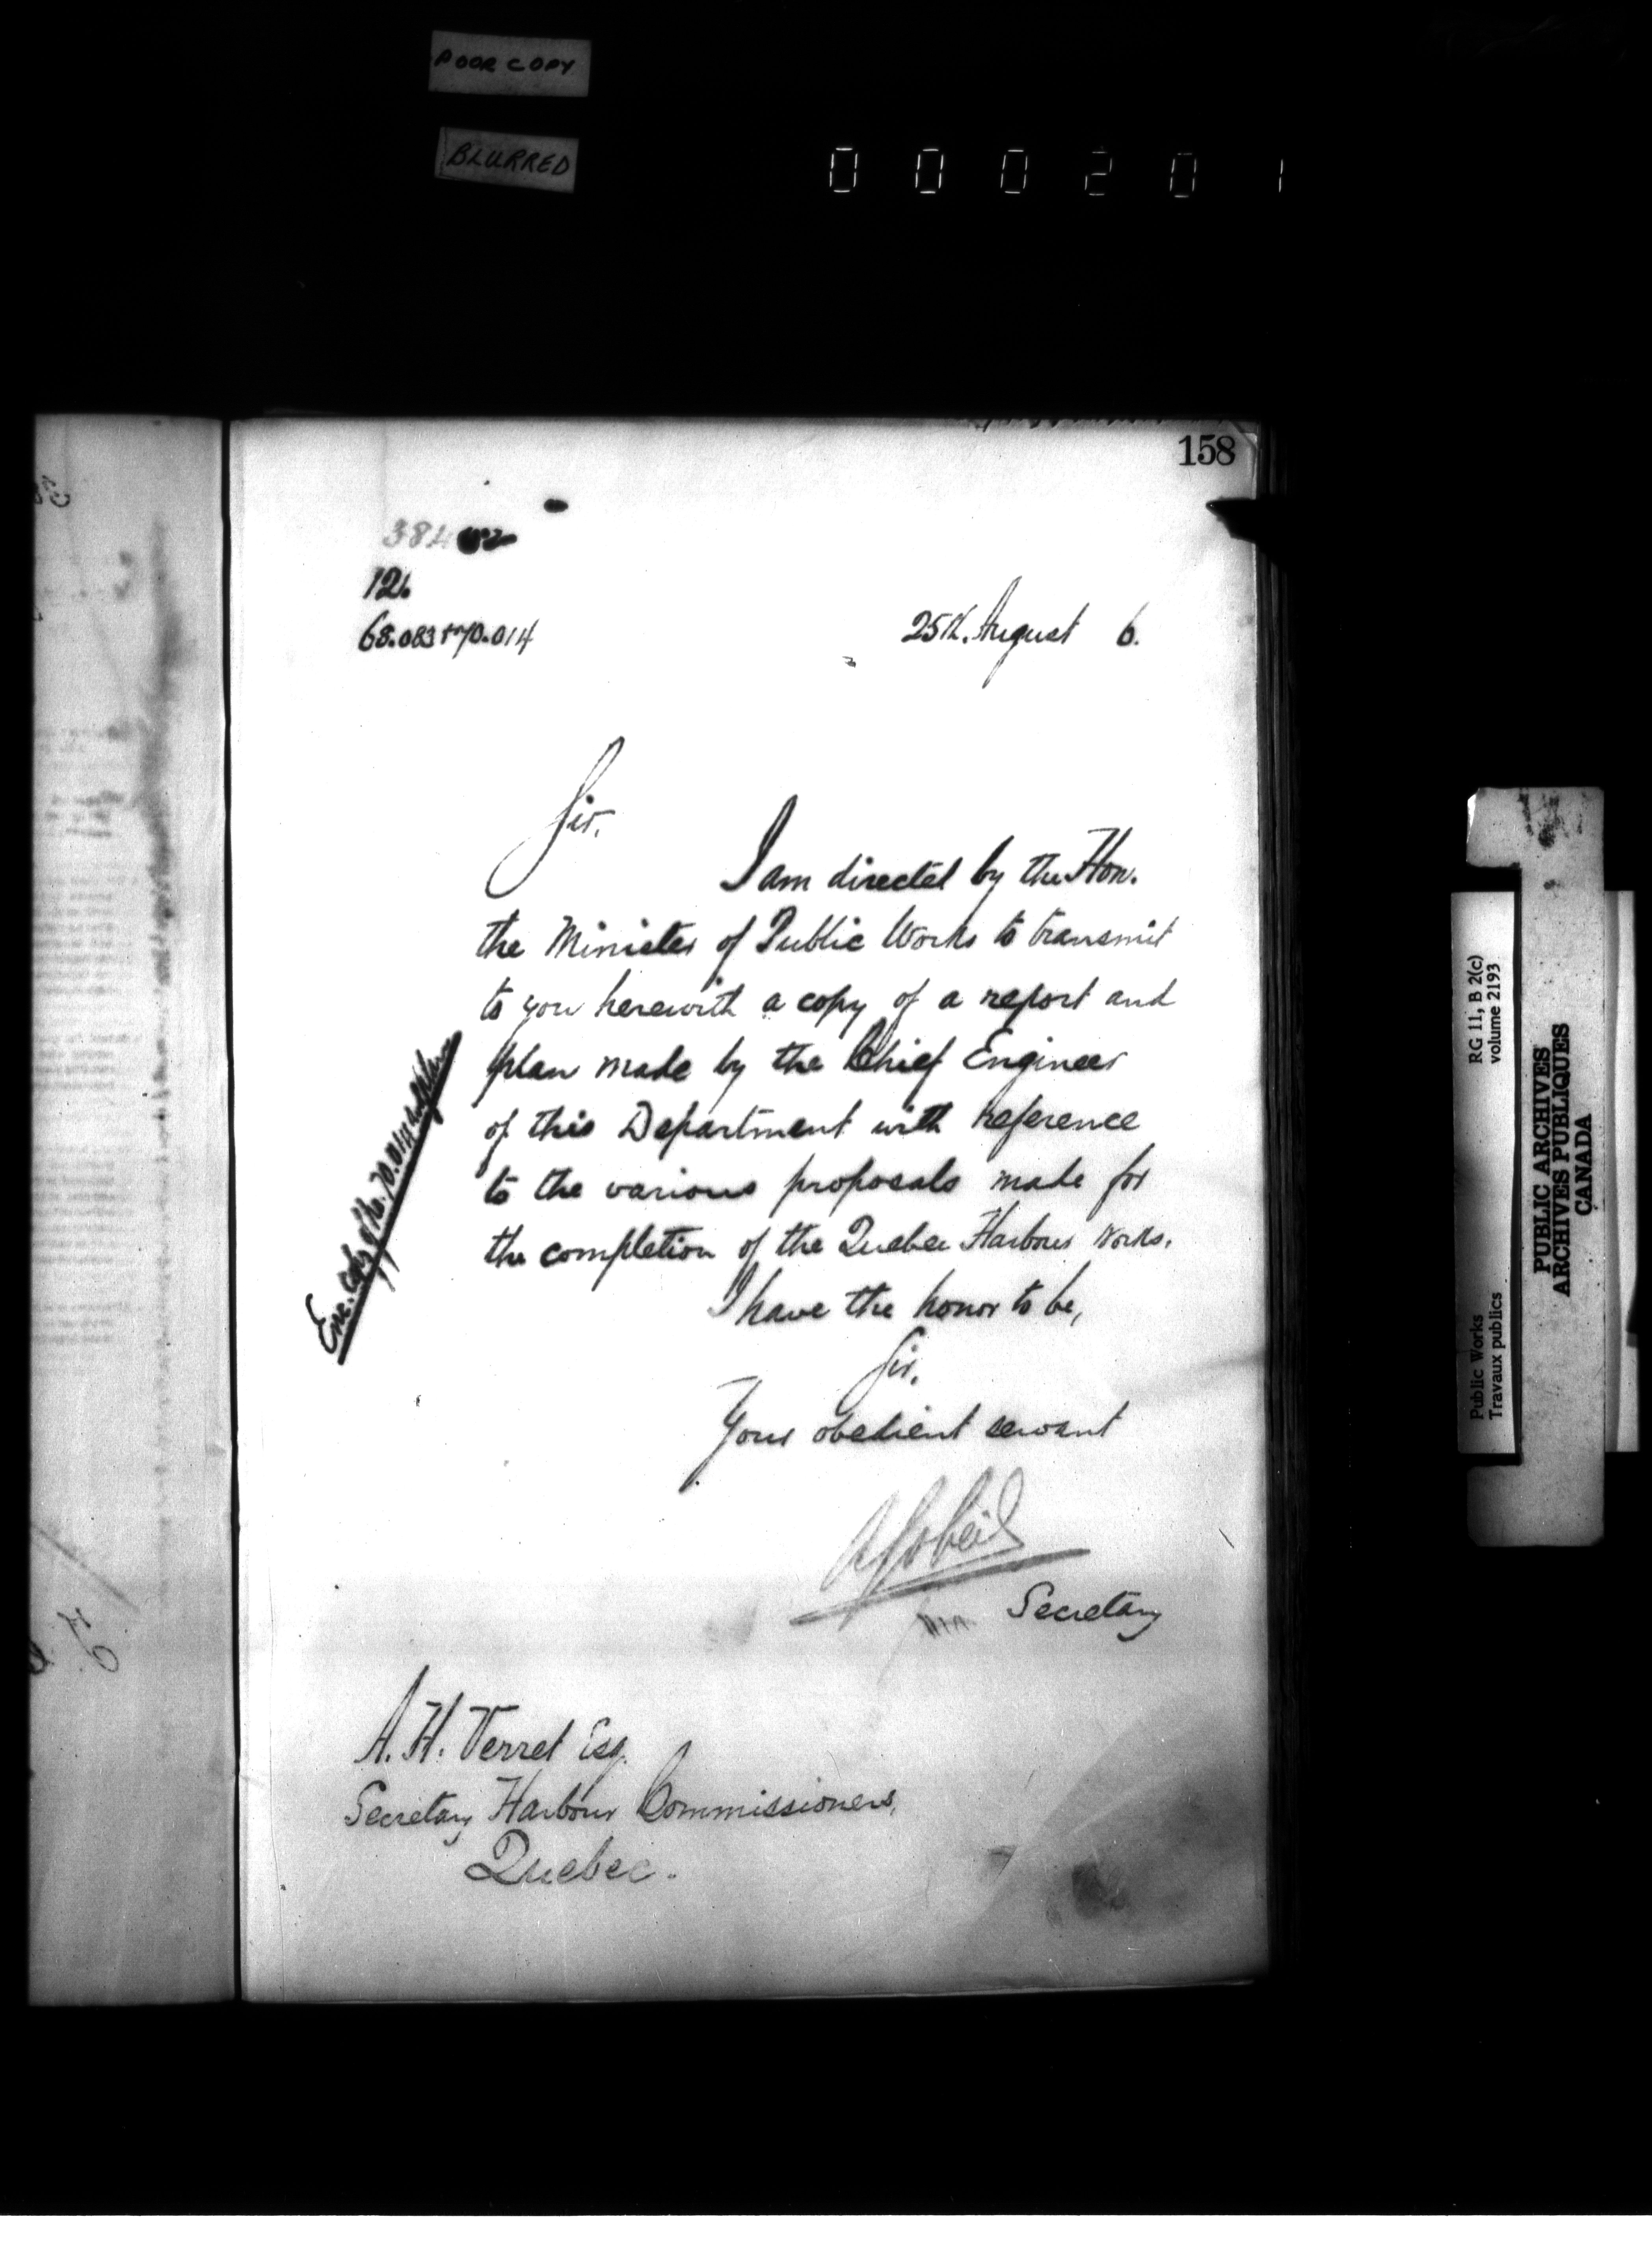 POOR COPY
BLURRED
000201
158
384
12.
68.083+70.014
25th. August 6.
Sir,
I am directed by the Hon.
the Minister of Public Works to transmit
to you herewith a copy of a report and
plan made by the Chief Engineer
of this Department with reference
to the various proposals made for
the completion of the Quebec Harbour Works.
Enc. Copy of No. 70.014 & plan
I have the honor to be,
Sir,
Your obedient servant
A Gobeil
Secretary
A. H. Verret Esq.
Secretary Harbour Commissioners,
Quebec.
RG 11, B 2(c)
volume 2193
Public Works
Travaux publics
PUBLIC ARCHIVES
ARCHIVES PUBLIQUES
CANADA